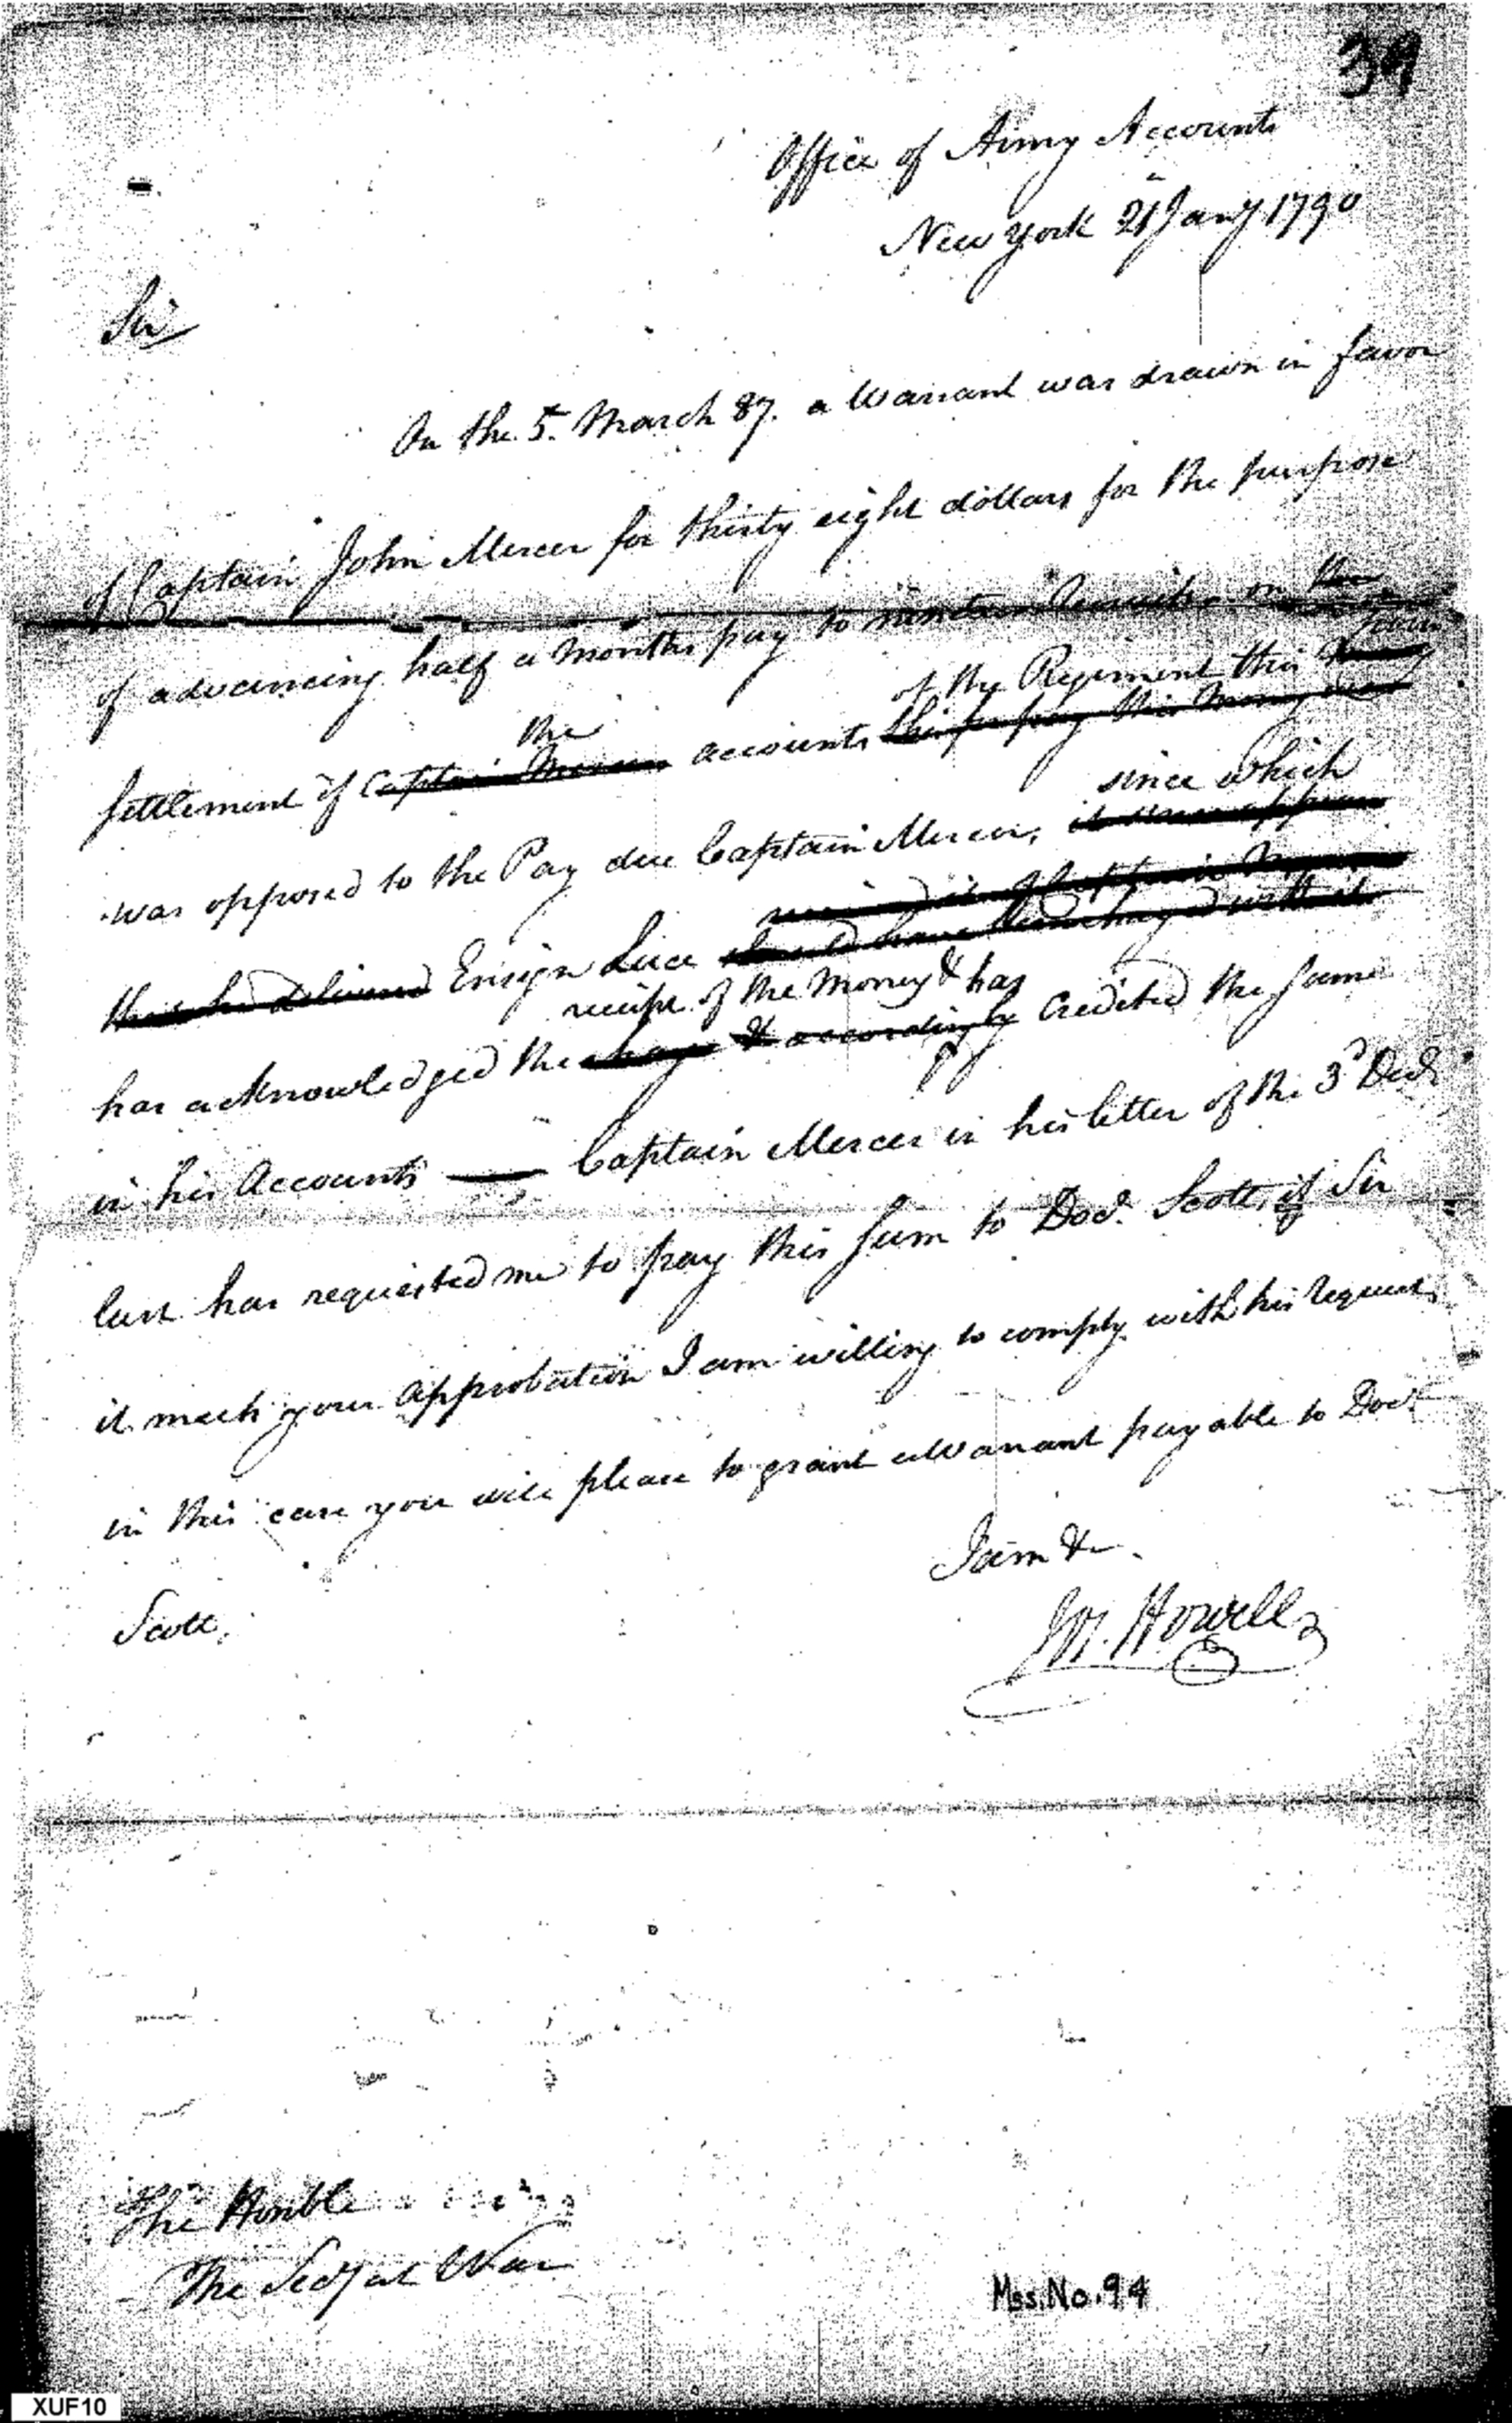 39
Office of Army Accounts
New York 21 Jany 1790
Sir
On the 5th March 87. a Warrant was drawn in favor
of Captain John Mercer for thirty eight dollars for the purpose
of advancing half a months pay to nineteen Recruits on the
of the Regiment this
the
settlement of Captain Mercers accounts this money was
since which
was opposed to the Pay due Captain Mercer, it since appears
received it of Captain Mercer
this he delivered Ensign Luce should have been charged with it
receipt of the Money & has
has acknowledged the charge & accordingly Credited the same
in his Accounts — Captain Mercer in his letter of the 3d Decr
last has requested me to pay this sum to Docr. Scott, if Sir
it meets your approbation I am willing to comply with his request,
in this case you will please to grant a Warrant payable to Docr
Scott.
I am &c.
JM. Howell
The Honble
The Secy at War
Mss. No. 94
XUF10